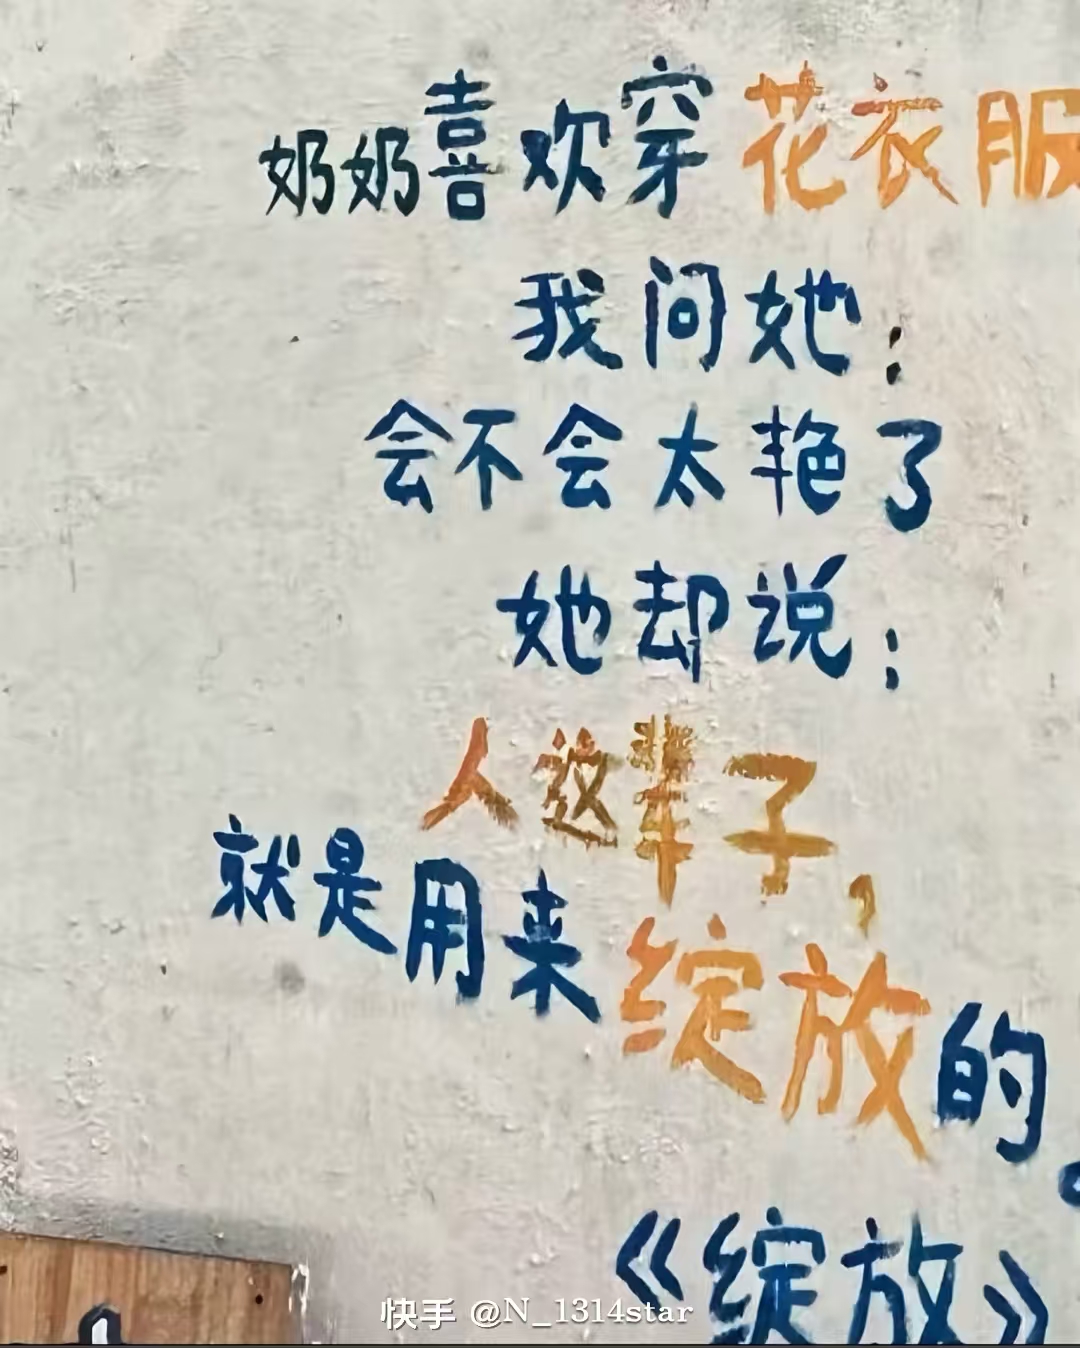 奶奶喜欢穿花衣服
我问她：
会不会太艳了
她却说：
人这辈子，
就是用来绽放的。
《绽放》
快手 @N_1314star